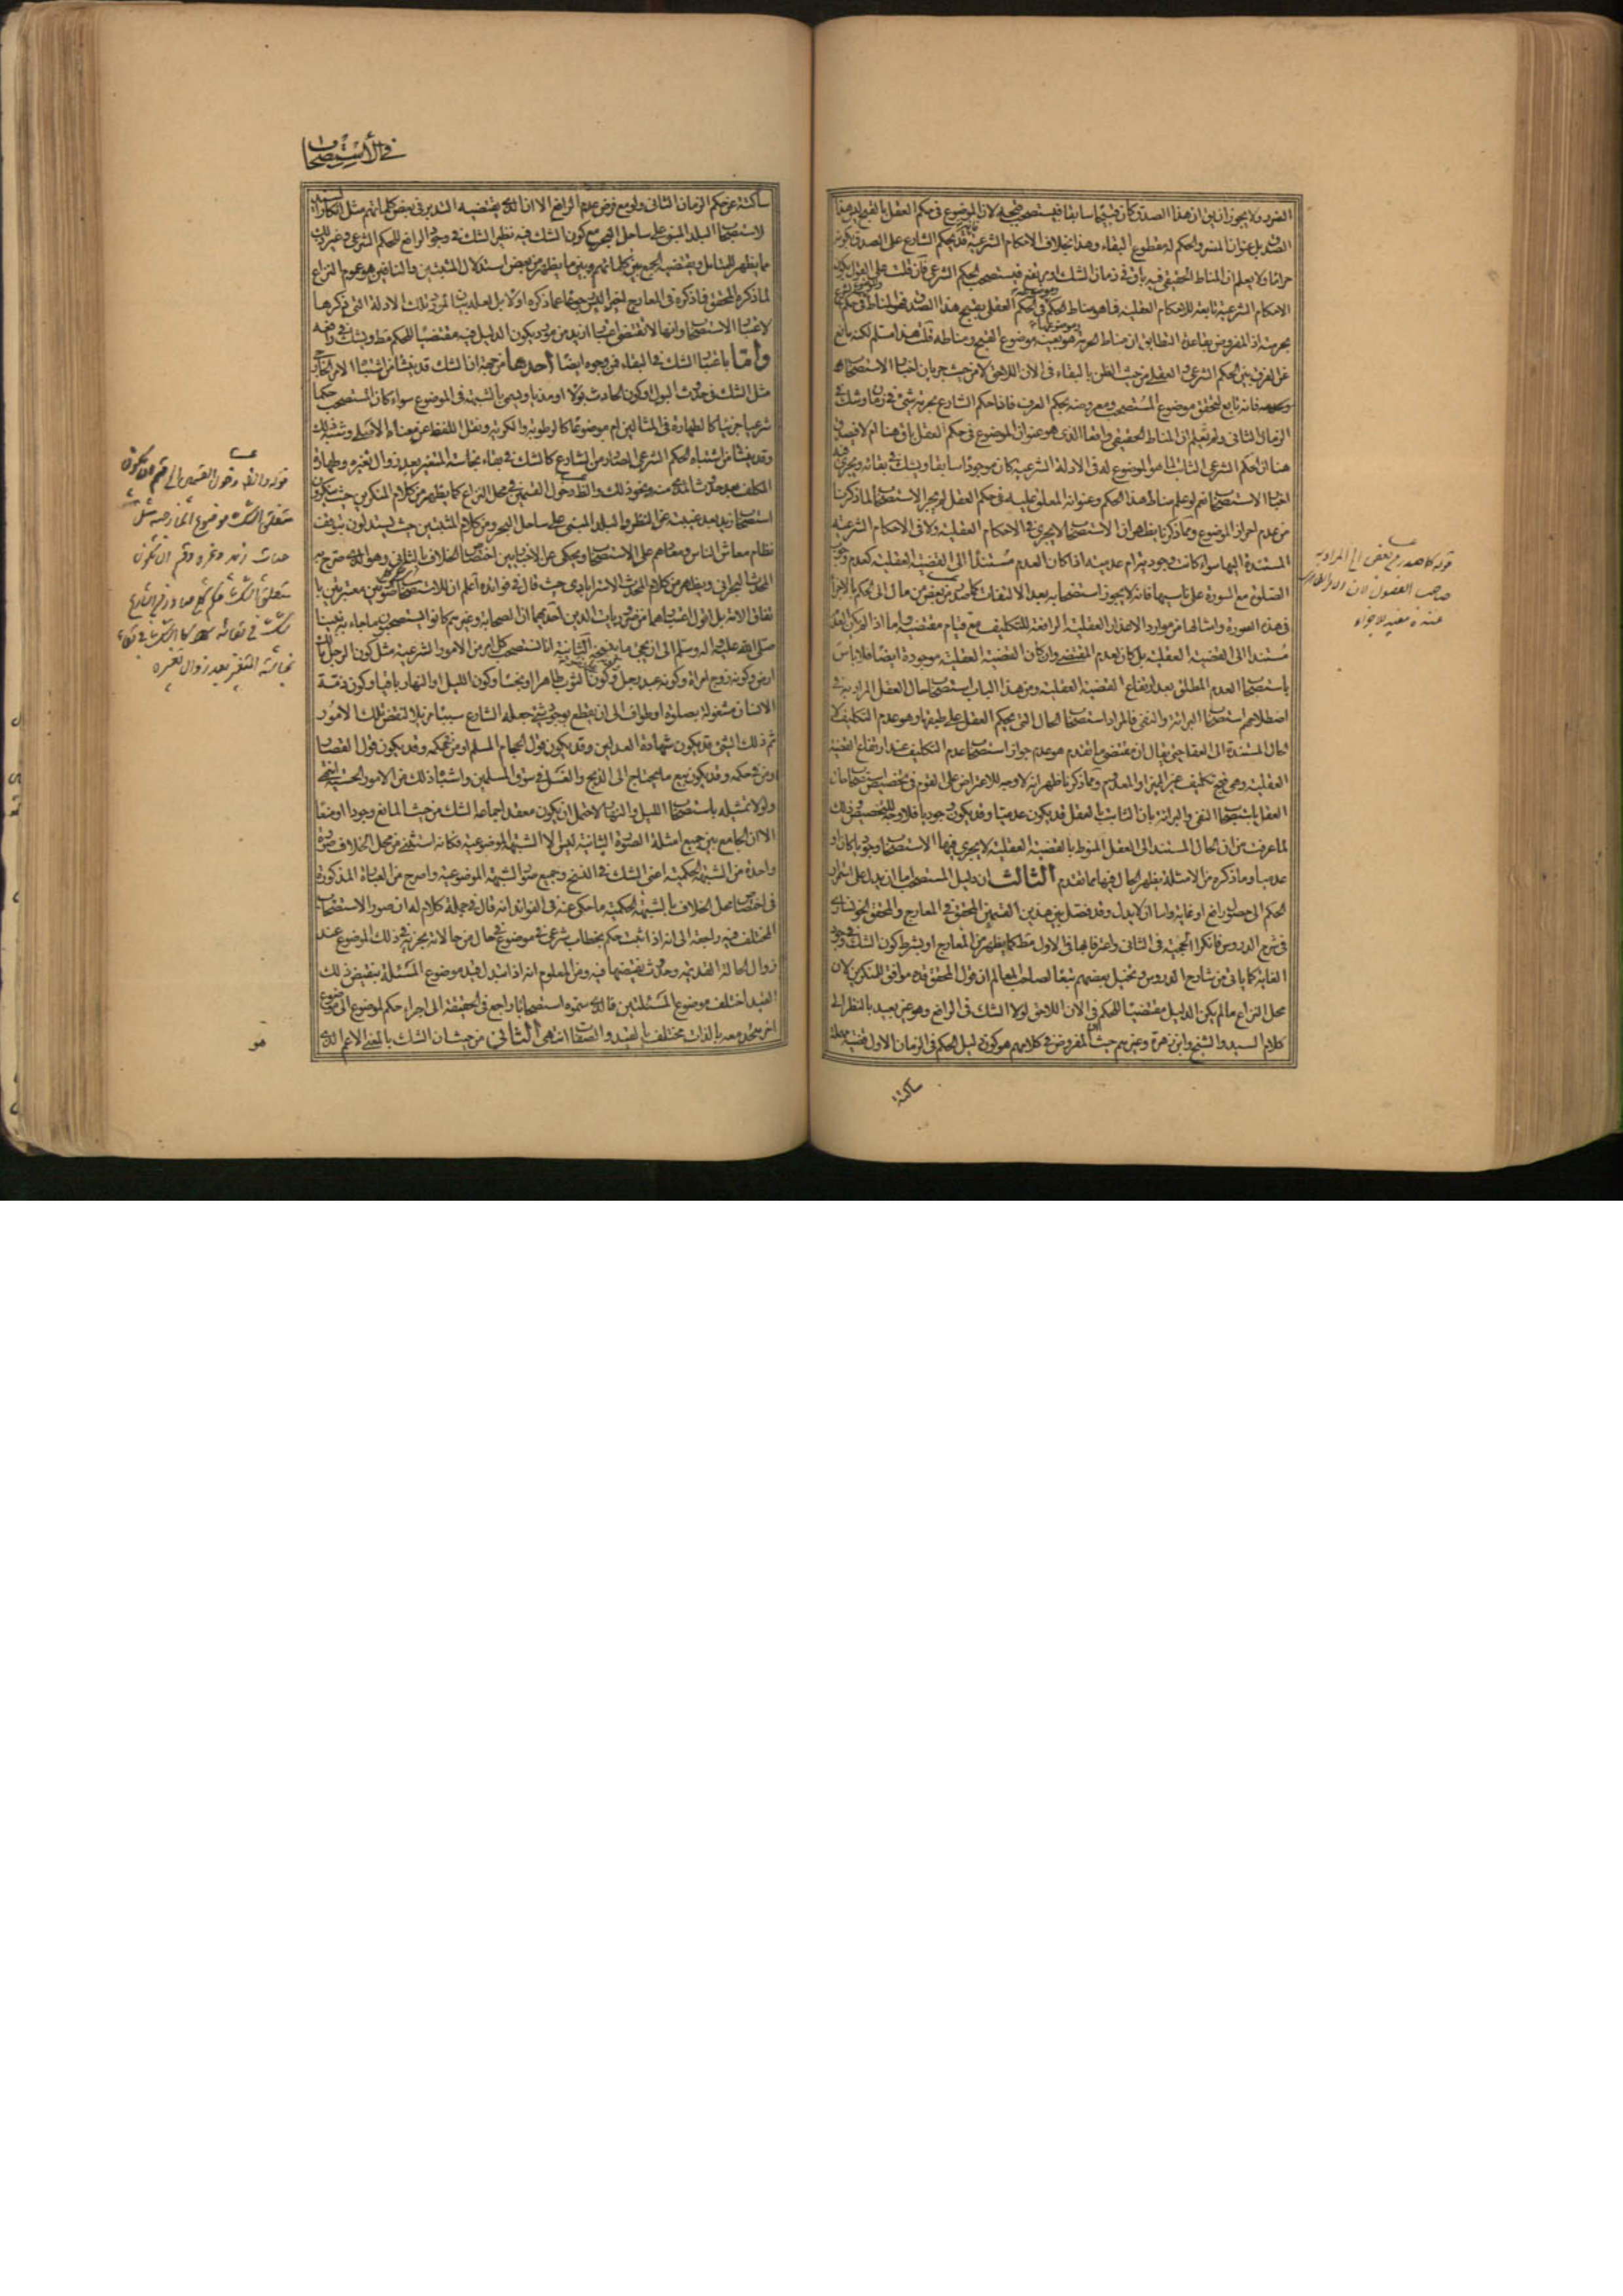 الضرر ولا يجوز ان يق ان هذا الصدق كان قبيحا سابقا فيستصحب قبحه لان الموضوع فى حكم العقل بالقبح ليس هذا
الصدق بل عنوان المضر والحكم له مقطوع البقاء وهذا بخلاف الاحكام الشرعية فانه قد يحكم الشارع على الصدق بكونه
حراما ولا يعلم ان المناط الحقيقى فيه باق فى زمان الشك او مرتفع فيستصحب الحكم الشرعى فان قلت على القول بكون
الاحكام الشرعية تابعة للاحكام العقلية فما هو مناط الحكم وموضوعه فى الحكم العقلى بقبح هذا الصدق فهو المناط فى حكم الشرع
بحرمته اذ المفروض بقاعدة التطابق ان مناط الحرمة وموضوعها هو بعينه موضوع القبح ومناطه قلت هذا مسلم لكنه مانع
عن الفرق بين الحكم الشرعى والعقلى من حيث الظن بالبقاء فى الان اللاحق لا من حيث جريان اخبار الاستصحاب
وعدمه فانه تابع لتحقق موضوع المستصحب ومعروضه بحكم العرف فاذا حكم الشارع بحرمة شئ فى زمان وشك فى
الزمان الثانى ولم يعلم ان المناط الحقيقى واقعا الذى هو عنوان الموضوع فى حكم العقل باق هنا ام لا فيصدق
هنا ان الحكم الشرعى الثابت لما هو الموضوع له فى الادلة الشرعية كان موجودا سابقا ويشك فى بقائه ويجرى فيه
اخبار الاستصحاب نعم لو علم مناط هذا الحكم وعنوانه المعلق عليه فى حكم العقل لم يجر الاستصحاب لما ذكرنا
من عدم احراز الموضوع ومما ذكرنا يظهر ان الاستصحاب لا يجرى فى الاحكام العقلية ولا فى الاحكام الشرعية
المستندة اليها سواء كانت وجودية ام عدمية اذا كان العدم مستندا الى القضية العقلية كعدم وجوب
الصلوة مع السورة على ناسيها فانه لا يجوز استصحابه بعد الالتفات كما صدر من بعض من مال الى الحكم بالاجزاء
فى هذه الصورة وامثالها من موارد الاعذار العقلية الرافعة للتكليف مع قيام مقتضيه واما اذا لم يكن العدم
مستندا الى القضية العقلية بل كان لعدم المقتضى وان كان القضية العقلية موجودة ايضا فلا باس
باستصحاب العدم المطلق بعد ارتفاع القضية العقلية ومن هذا الباب استصحاب حال العقل المراد به فى
اصطلاحهم استصحاب البرائة والنفى فالمراد استصحاب الحال التى يحكم العقل على طبقها وهو عدم التكليف لا
الحال المستندة الى العقل حتى يقال ان مقتضى ما تقدم هو عدم جواز استصحاب عدم التكليف عند ارتفاع القضية
العقلية وهى قبح تكليف غير المميز او المعدوم ومما ذكرنا ظهر انه لا وجه للاعتراض على القوم فى تخصيص استصحاب حال
العقل باستصحاب النفى والبرائة بان الثابت بالعقل قد يكون عدميا وقد يكون وجوديا فلا وجه للتخصيص وذلك
لما عرفت من ان الحال المستند الى العقل المنوط بالقضية العقلية لا يجرى فيها الاستصحاب وجوديا كان او
عدميا وما ذكره من الامثلة يظهر الحال فيها مما تقدم الثالث ان دليل المستصحب اما ان يدل على استمرار
الحكم الى حصول رافع او غاية واما ان لا يدل وقد فصل بين هذين القسمين المحقق فى المعارج والمحقق الخوانسارى
فى شرح الدروس فانكرا الحجية فى الثانى واعترفا بها فى الاول مطلقا كما يظهر من المعارج او بشرط كون الشك فى وجود
الغاية كما ياتى من شارح الدروس وتخيل بعضهم تبعا لصاحب المعالم ان قول المحقق قده موافق للمنكرين لان
محل النزاع ما لم يكن الدليل مقتضيا للحكم فى الان اللاحق لولا الشك فى الرافع وهو غير بعيد بالنظر الى
كلام السيد والشيخ وابن زهرة وغيرهم حيث ان المفروض فى كلامهم هو كون دليل الحكم فى الزمان الاول قضية مهملة
ساكتة
قوله كما صدر من بعض الخ المراد به
صاحب الفصول
فى الاستصحاب
ساكتة عن حكم الزمان الثانى ولو مع فرض عدم الرافع الا ان الذى يقتضيه التدبر فى بعض كلماتهم مثل انكار السيد
لاستصحاب البلد المبنى على ساحل البحر مع كون الشك فيه نظير الشك فى وجود الرافع للحكم الشرعى وغير ذلك
مما يظهر للمتامل ويقتضيه الجمع بين كلماتهم وبين ما يظهر من بعض استدلال المثبتين والنافين هو عموم النزاع
لما ذكره المحقق فما ذكره فى المعارج اخيرا ليس رجوعا عما ذكره اولا بل لعله بيان لمورد تلك الادلة التى ذكرها
لاعتبار الاستصحاب وانها لا تقتضى اعتبارا ازيد من مورد يكون الدليل فيه مقتضيا للحكم مطلقا ويشك فى رافعه
واما باعتبار الشك فى البقاء فمن وجوه ايضا احدها من جهة ان الشك قد ينشأ من اشتباه الامر الخارجى
مثل الشك فى حدوث البول او كون الحادث بولا او وذيا ويسمى بالشبهة فى الموضوع سواء كان المستصحب حكما
شرعيا جزئيا كالطهارة فى المثالين ام موضوعا كالرطوبة والكرية ونقل اللفظ عن معناه الاصلى وشبه ذلك
وقد ينشأ من اشتباه الحكم الشرعى الصادر من الشارع كالشك فى بقاء نجاسة المتغير بعد زوال تغيره وطهارة
المكلف بعد حدوث المذى منه ونحو ذلك والظاهر دخول القسمين فى محل النزاع كما يظهر من كلام المنكرين حيث ينكرون
استصحاب زيد بعد غيبته عن النظر والبلد المبنى على ساحل البحر ومن كلام المثبتين حيث يستدلون بتوقف
نظام معاش الناس ومعادهم على الاستصحاب ويحكى عن الاخباريين اختصاص الخلاف بالثانى وهو الذى صرح به
المحدث البحرانى ويظهر من كلام المحدث الاسترابادى حيث قال فى فوائده اعلم ان للاستصحاب صورتين معتبرتين با
تفاق الامة بل اقول اعتبارهما من ضروريات الدين احديهما ان الصحابة وغيرهم كانوا يستصحبون ما جاء به نبينا
صلى الله عليه واله وسلم الى ان يجئ ما ينسخه الثانية انا نستصحب كل امر من الامور الشرعية مثل كون الرجل مالك
ارض وكونه زوج امراة وكونه عبد رجل وكونه على وضوء وكون الثوب طاهرا او نجسا وكون الليل او النهار باقيا وكون ذمة
الانسان مشغولة بصلوة او طواف الى ان يقطع بوجود شئ جعله الشارع سببا مزيلا لنقض تلك الامور
ثم ذلك الشئ قد يكون شهادة العدلين وقد يكون قول الحجام المسلم او من فى حكمه وقد يكون قول القصار
او من فى حكمه وقد يكون بيع ما يحتاج الى الذبح والغسل فى سوق المسلمين واشباه ذلك من الامور الحسية انتهى
ولولا تمثيله باستصحاب الليل والنهار لاحتمل ان يكون معقد اجماعه الشك من حيث المانع وجودا او منعا
الا ان الجامع بين جميع امثلة الصورة الثانية ليس الا الشبهة الموضوعية فكانه استثنى من محل الخلاف صورة
واحدة من الشبهة الحكمية اعنى الشك فى النسخ وجميع صور الشبهة الموضوعية واصرح من العبارة المذكورة
فى اختصاص محل الخلاف بالشبهة الحكمية ما حكى عنه فى الفوائد انه قال فى جملة كلام له ان صور الاستصحاب
المختلف فيه راجعة الى انه اذا ثبت حكم بخطاب شرعى فى موضوع فى حال من حالاته نجريه فى ذلك الموضوع عند
زوال الحالة القديمة وحدوث نقيضها فيه ومن المعلوم انه اذا تبدل قيد موضوع المسئلة بنقيض ذلك
القيد اختلف موضوع المسئلتين فالذى سموه استصحابا راجع فى الحقيقة الى اجراء حكم لموضوع الى موضوع
اخر متحد معه بالذات مختلف بالقيد والصفات انتهى الثانى من حيث ان الشك بالمعنى الاعم الذى
هو
قوله والظ دخول القسمين
متعلق الشك موضوع الخارجية مثل
حيات زيد وعمرو وقسم ان يكون
متعلق الشك حكم
نجاسة المتغير بعد زوال تغيره